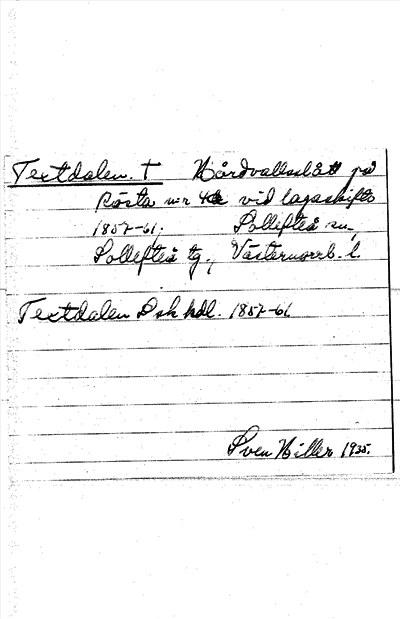 Textdalen. † Hårdvallsslått på
Rösta n:r 4 vid lagaskifte
1857-61. Sollefteå sn.,
Sollefteå tg., Västernorrl. l.
Textdalen Lsk hdl. 1857-61
Sven Hillen 1935.